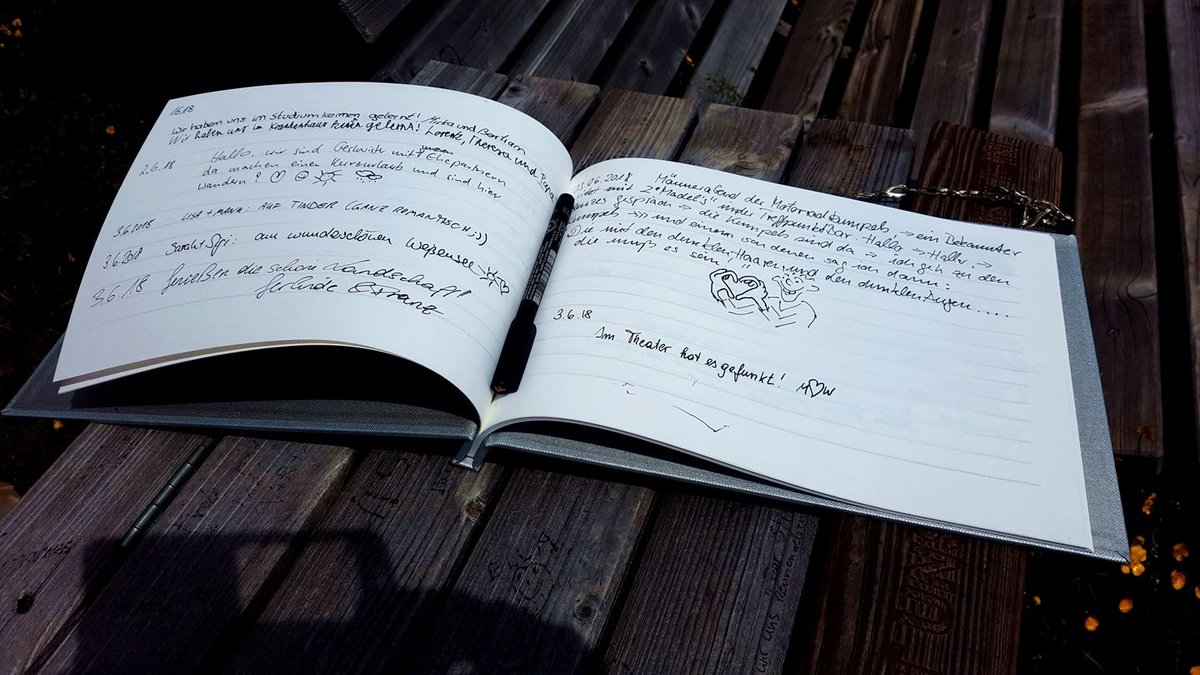 1.6.18
Wir haben uns im Studium kennen gelernt! Mirka und Bertram
Wir haben uns im Krankenhaus kennen gelernt! Lorenz, Theresa und
2.6.18 Hallo, wir sind Geschwister mit unseren Ehepartnern
da machen einen Kurzurlaub und sind hier
wandern!
3.6.2018 LISA + MANU: AUF TINDER (GANZ ROMANTISCH ;))
3.6.2018 Sarah + Sipi: am wunderschönen Weßensee
3.6.18 Genießen die schöne Landschaft!
Gerlinde & Franz
03.06.2018 Männerabend der Motorradkumpels → ein Bekannter
mit 2 "Mädels" in der Treffpunkt Bar: Hallo → Hallo →
Gespräch → die Kumpels sind da → ich geh zu den
Kumpels → und einem von denen sag ich dann:
Die mit den dunklen Haaren und den dunklen Augen....
die muß es sein!!
3.6.18
Im Theater hat es gefunkt! M♡W